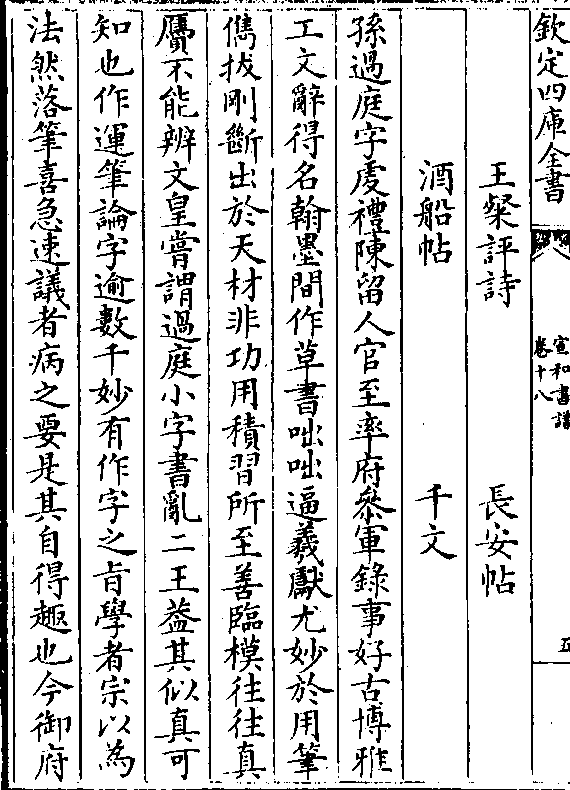 欽定四庫全書
宣和書譜
卷十八
五
王粲評詩　長安帖
酒船帖　千文
孫過庭字虔禮陳留人官至率府叅軍錄事好古博雅
工文辭得名翰墨間作草書咄咄逼羲獻尤妙於用筆
儁拔剛斷出於天材非功用積習所至善臨模往往真
贗不能辨文皇嘗謂過庭小字書亂二王葢其似真可
知也作運筆論字逾數千妙有作字之旨學者宗以為
法然落筆喜急速議者病之要是其自得趣也今御府